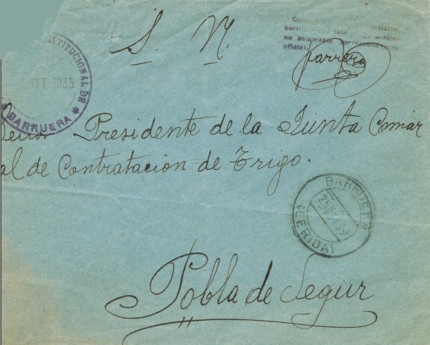 S. N.
STITUCIONAL DE
OCT 1935
BARRUERA
Farrero
Señor Presidente de la Junta Comar
al de Contratación de Trigo.
BARRUERA
(LERIDA)
Pobla de Segur